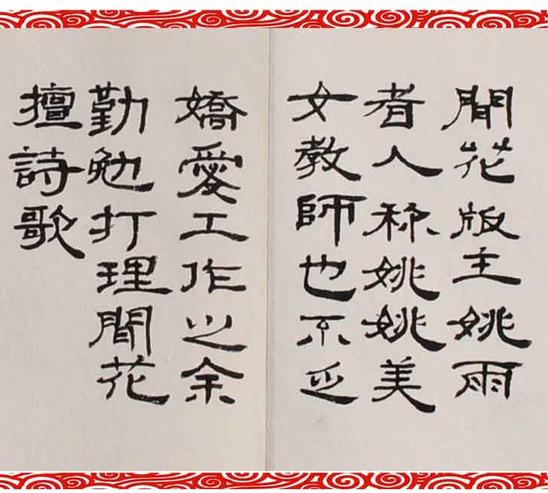 閒花版主姚雨
者人称姚姚美
女教師也不乏
嬌愛工作之余
勤勉打理閒花
擅詩歌